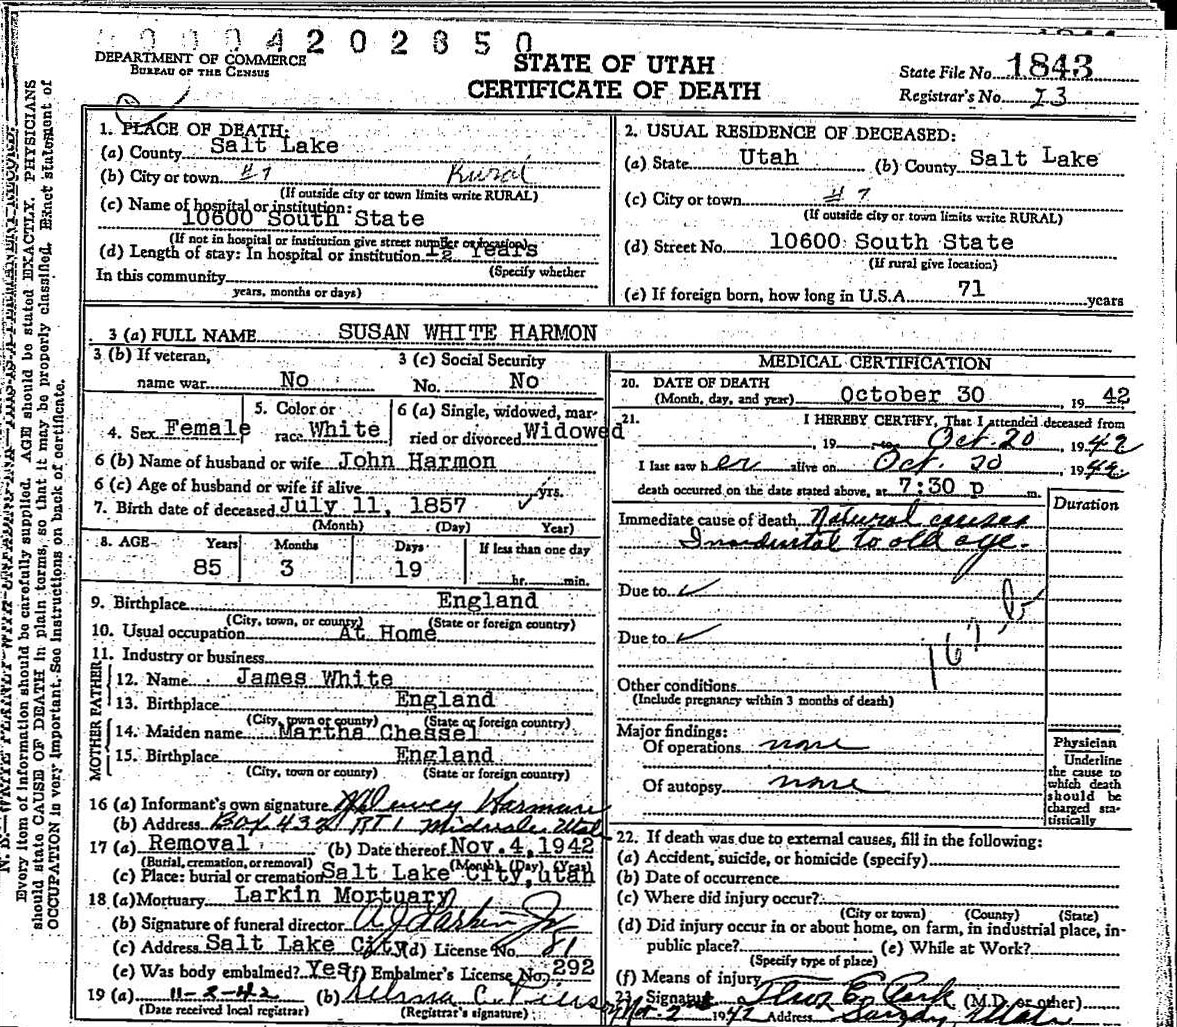 0004202850
DEPARTMENT OF COMMERCE
BUREAU OF THE CENSUS
STATE OF UTAH
CERTIFICATE OF DEATH
State File No. 1843
Registrar's No. 23
1. PLACE OF DEATH:
(a) County Salt Lake
(b) City or town #7 Rural
(If outside city or town limits write RURAL)
(c) Name of hospital or institution:
10600 South State
(If not in hospital or institution give street number or location)
(d) Length of stay: In hospital or institution 12 Years
(Specify whether
In this community
years, months or days)
2. USUAL RESIDENCE OF DECEASED:
(a) State Utah (b) County Salt Lake
(c) City or town #7
(If outside city or town limits write RURAL)
(d) Street No. 10600 South State
(If rural give location)
(e) If foreign born, how long in U.S.A. 71 years
3 (a) FULL NAME SUSAN WHITE HARMON
3 (b) If veteran,
name war No
3 (c) Social Security
No. No
4. Sex Female
5. Color or
race White
6 (a) Single, widowed, mar-
ried or divorced Widowed
6 (b) Name of husband or wife John Harmon
6 (c) Age of husband or wife if alive yrs.
7. Birth date of deceased July 11, 1857
(Month) (Day) Year)
8. AGE Years Months Days If less than one day
85 3 19 hr. min.
9. Birthplace England
(City, town, or county) (State or foreign country)
10. Usual occupation At Home
11. Industry or business
FATHER
12. Name James White
13. Birthplace England
(City, town or county) (State or foreign country)
MOTHER
14. Maiden name Martha Chessel
15. Birthplace England
(City, town or county) (State or foreign country)
16 (a) Informant's own signature Harmon
(b) Address Box 432 RT 1 Midvale, Utah
17 (a) Removal (b) Date thereof Nov. 4, 1942
(Burial, cremation, or removal) (Month) (Day) (Year)
(c) Place: burial or cremation Salt Lake City, Utah
18 (a) Mortuary Larkin Mortuary
(b) Signature of funeral director A J Larkin Jr
(c) Address Salt Lake City (d) License No. 81
(e) Was body embalmed? Yes (f) Embalmer's License No. 292
19 (a) 11-2-42 (b)
(Date received local registrar) (Registrar's signature)
MEDICAL CERTIFICATION
20. DATE OF DEATH
(Month, day, and year) October 30, 1942
21. I HEREBY CERTIFY, That I attended deceased from
, 19 to Oct. 20, 1942
I last saw her alive on Oct. 20 1942
death occurred on the date stated above, at 7:30 p m.
Duration
Immediate cause of death Natural causes
Insidental to old age.
Due to ✓
Due to ✓
162 b
Other conditions
(Include pregnancy within 3 months of death)
Major findings:
Of operations none
Of autopsy none
Physician
Underline
the cause to
which death
should be
charged sta-
tistically
22. If death was due to external causes, fill in the following:
(a) Accident, suicide, or homicide (specify)
(b) Date of occurrence
(c) Where did injury occur?
(City or town) (County) (State)
(d) Did injury occur in or about home, on farm, in industrial place, in-
public place? (e) While at Work?
(Specify type of place)
(f) Means of injury
23. Signature (M.D. or other)
Nov-2 1942 Address Sandy Utah
Every item of information should be carefully supplied. AGE should be stated EXACTLY. PHYSICIANS
should state CAUSE OF DEATH in plain terms, so that it may be properly classified. Exact statement of
OCCUPATION is very important. See instructions on back of certificate.